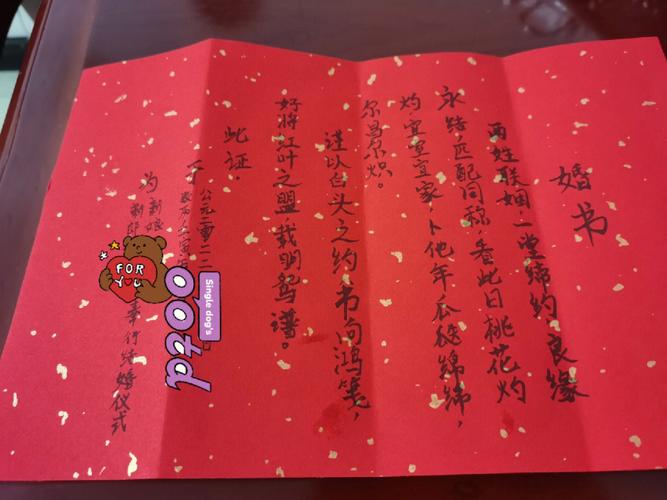 婚书
两姓联姻，一堂缔约，良缘
永结，匹配同称，看此日桃花灼
灼，宜室宜家，卜他年瓜瓞绵绵，
尔昌尔炽。
谨以白头之约，书向鸿笺，
好将红叶之盟，载明鸳谱。
此证
于 公元二零二二
为 新娘
新郎
举行结婚仪式
FOR YOU
Single dog's
ootd